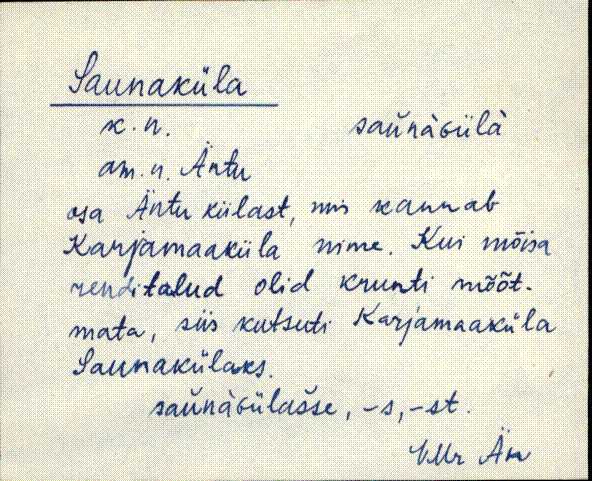 Saunaküla
k. n. saŭnàɢülà
am. n. Äntu
osa Äntu külast, mis kannab
Karjamaaküla nime. Kui mõisa
renditalud olid krunti mõõt-
mata, siis kutsuti Karjamaaküla
Saunakülaks.
saŭnàɢülašse, -s, -st.
VMr Än